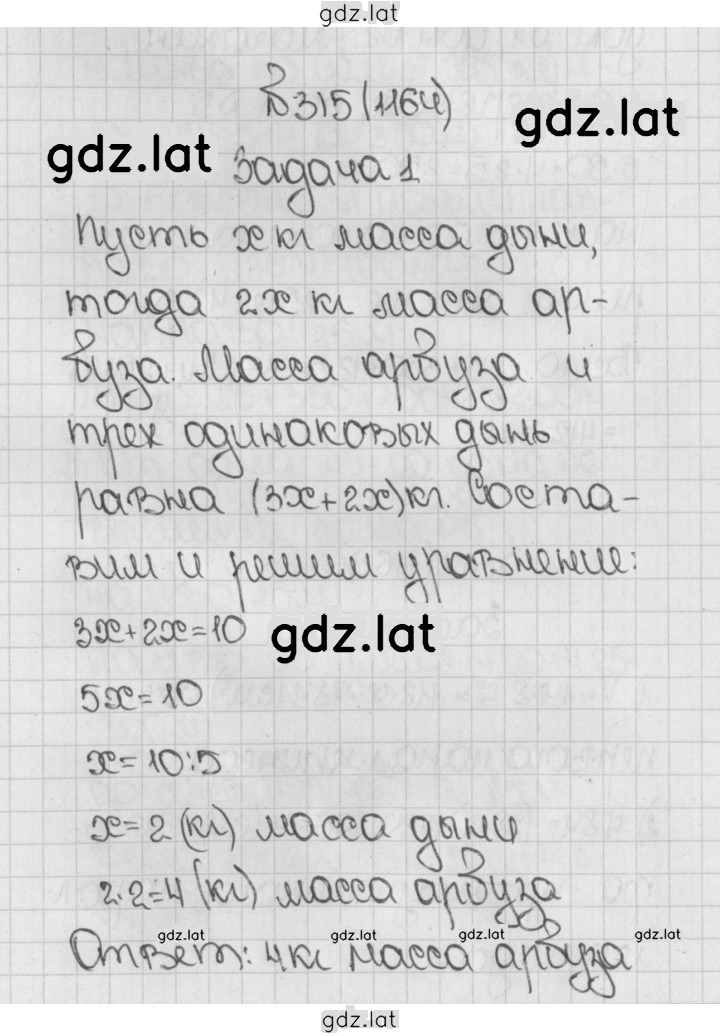 gdz.lat
№315 (1164)
gdz.lat
gdz.lat
Задача 1
Пусть x кг масса дыни,
тогда 2x кг масса ар-
буза. Масса арбуза и
трех одинаковых дынь
равна (3x+2x)кг. Соста-
вим и решим уравнение:
3x+2x=10
gdz.lat
5x=10
x=10:5
x=2 (кг) масса дыни
2·2=4 (кг) масса арбуза
gdz.lat gdz.lat gdz.lat
Ответ: 4кг масса арбуза
gdz.lat